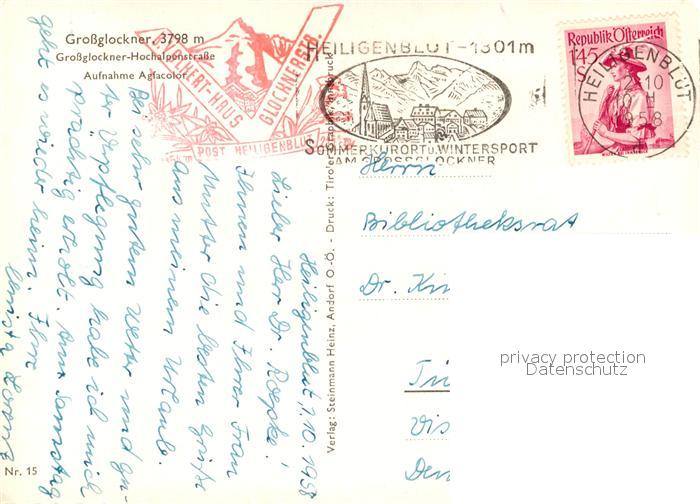 Großglockner, 3798 m
Großglockner-Hochalpenstraße
Aufnahme Agfacolor
GLOCKNERSTR.
POST HEILIGENBLUT
HEILIGENBLUT-1301m
SOMMERKURORT U. WINTERSPORT
AM GROSSGLOCKNER
Republik Österreich
1.45
HEILIGENBLUT
2.10
58
Herrn
Bibliotheksrat
Dr.
privacy protection
Datenschutz
Verlag: Steinmann Heinz, Andorf O.-Ö. - Druck: Tiroler Graphik, Innsbruck
Heiligenblut, 1.10.1958
Lieber Herr Dr.
Ihnen und Ihrer Frau
Mutter die besten Grüße
aus meinem Urlaub.
Bei sehr gutem Wetter und gu-
ter Verpflegung habe ich mich
prächtig erholt. Am Samstag
geht es wieder heim. Ihre
Nr. 15